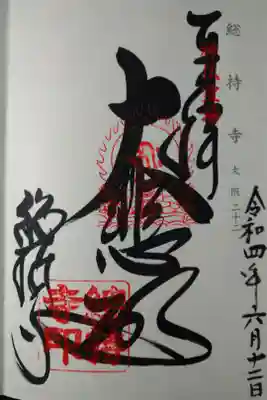 総持寺 大阪 二十二
奉拝
令和四年六月十二日
大悲殿
総持寺